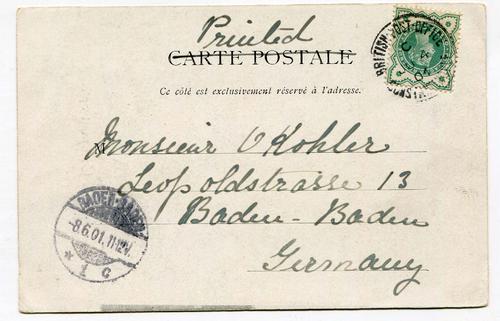 Printed
CARTE POSTALE
BRITISH POST OFFICE
Ce côté est exclusivement réservé à l'adresse.
Monsieur O Kohler
Leopoldstrasse 13
Baden-Baden
Germany
BADEN-BADEN
-8.6.01.11-12V.
* 1 c